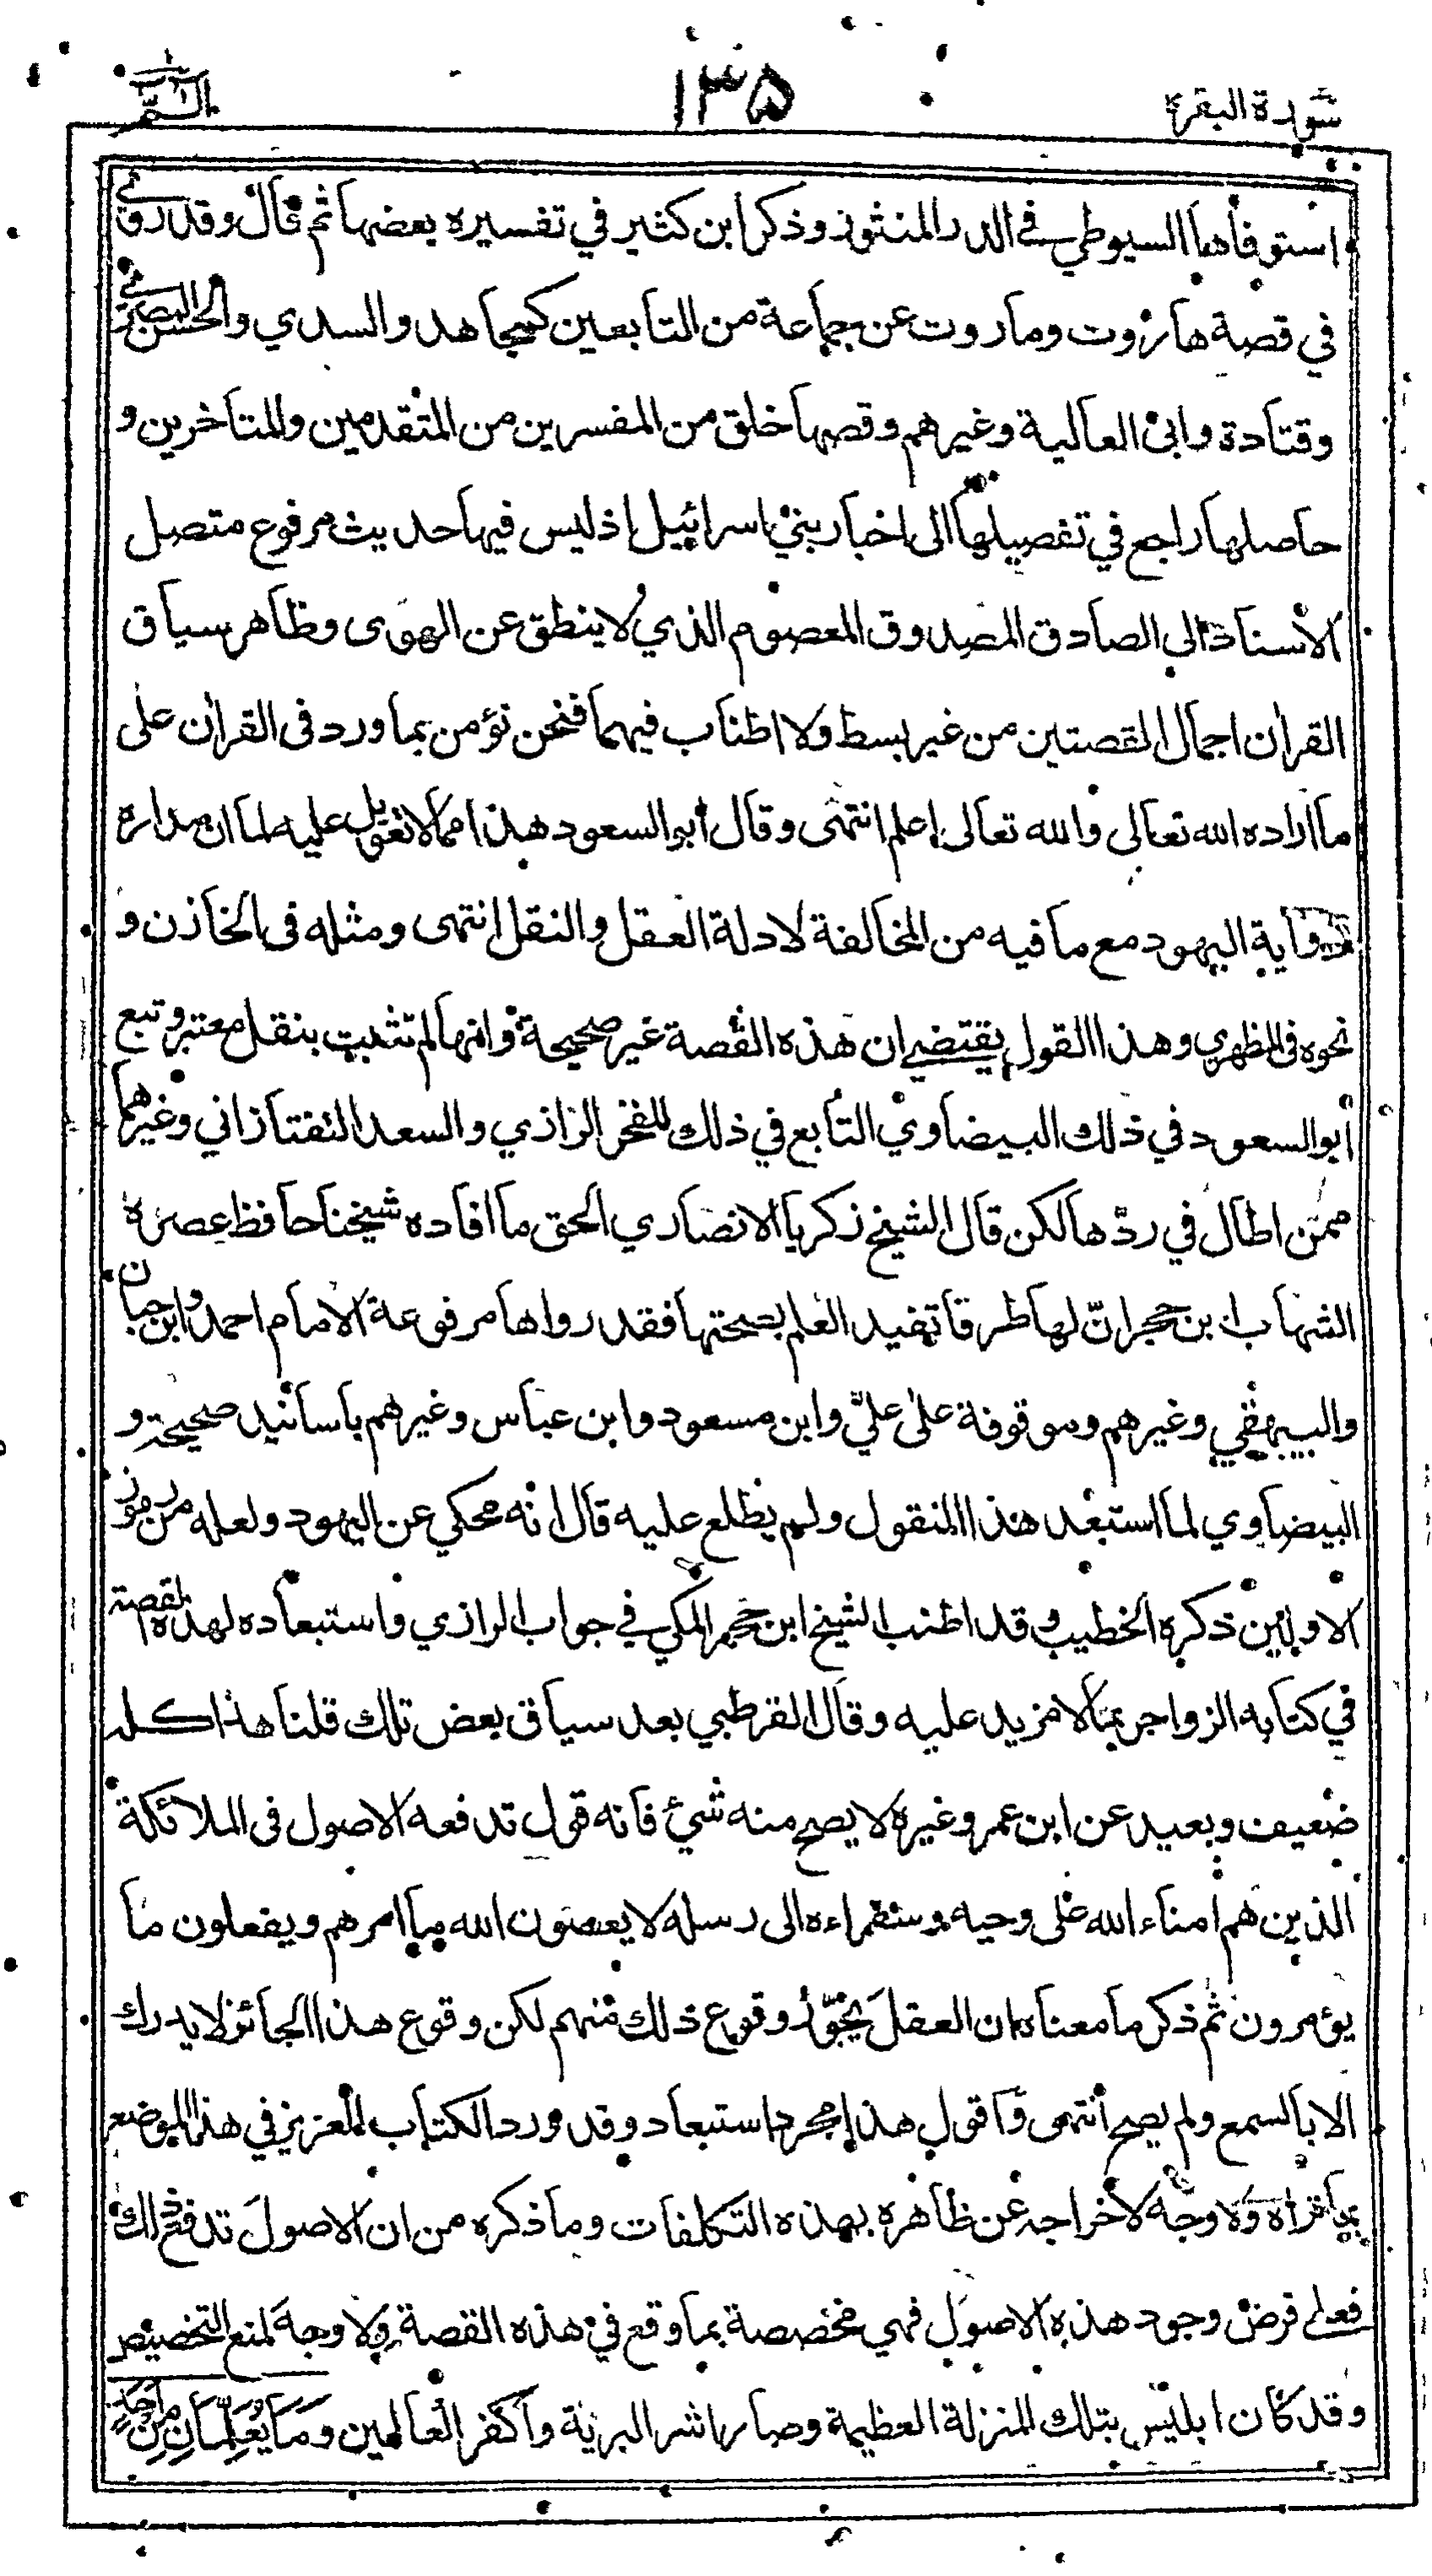 سورة البقرة ١٣٥ الٓمّٓ
استوفاها السيوطي في الدر المنثور وذكر ابن كثير في تفسيره بعضها ثم قال وقد روي
في قصة هاروت وماروت عن جماعة من التابعين كمجاهد والسدي والحسن البصري
وقتادة وابي العالية وغيرهم وقصها خلق من المفسرين من المتقدمين والمتاخرين و
حاصلها راجع في تفصيلها الى اخبار بني اسرائيل اذ ليس فيها حديث مرفوع متصل
الاسناد الى الصادق المصدوق المعصوم الذي لا ينطق عن الهوى وظاهر سياق
القران اجمال القصتين من غير بسط ولا اطناب فيهما فنحن نؤمن بما ورد في القران على
ما اراده الله تعالى والله تعالى اعلم انتهى وقال أبو السعود هذا مما لا تعويل عليه لما ان مداره
رواية اليهود مع ما فيه من المخالفة لادلة العقل والنقل انتهى ومثله في الخازن و
نحوه في المظهري وهذا القول يقتضي ان هذه القصة غير صحيحة وانها لم تثبت بنقل معتبر وتبع
أبو السعود في ذلك البيضاوي التابع في ذلك للفخر الرازي والسعد التفتازاني وغيرهما
ممن اطال في ردّها لكن قال الشيخ زكريا الانصاري الحق ما افاده شيخنا حافظ عصره
الشهاب ابن حجر انّ لها طرقا تفيد العلم بصحتها فقد رواها مرفوعة الامام احمد وابن حبان
والبيهقي وغيرهم وموقوفة على عليّ وابن مسعود وابن عباس وغيرهم بأسانيد صحيحة و
البيضاوي لما استبعد هذا المنقول ولم يطلع عليه قال انه محكي عن اليهود ولعله من رموز
الاولين ذكره الخطيب وقد اطنب الشيخ ابن حجر المكي في جواب الرازي واستبعاده لهذه القصة
في كتابه الزواجر بما لا مزيد عليه وقال القرطبي بعد سياق بعض تلك قلنا هذا كله
ضعيف وبعيد عن ابن عمر وغيره لا يصح منه شيء فانه قول تدفعه الاصول في الملائكة
الذين هم امناء الله على وحيه وسفراءه الى رسله لا يعصون الله ما امرهم ويفعلون ما
يؤمرون ثم ذكر ما معناه ان العقل يجوّز وقوع ذلك منهم لكن وقوع هذا الجائز لا يدرك
الا بالسمع ولم يصح انتهى واقول هذا مجرد استبعاد وقد ورد الكتاب العزيز في هذا الموضع
بما تراه ولا وجه لاخراجه عن ظاهره بهذه التكلفات وما ذكره من ان الاصول تدفع ذلك
فعلى فرض وجود هذه الاصول فهي مخصصة بما وقع في هذه القصة ولا وجه لمنع التخصيص
وقد كان ابليس بتلك المنزلة العظيمة وصار اشر البرية واكفر العالمين وَمَا يُعَلِّمَانِ مِنْ اَحَدٍ